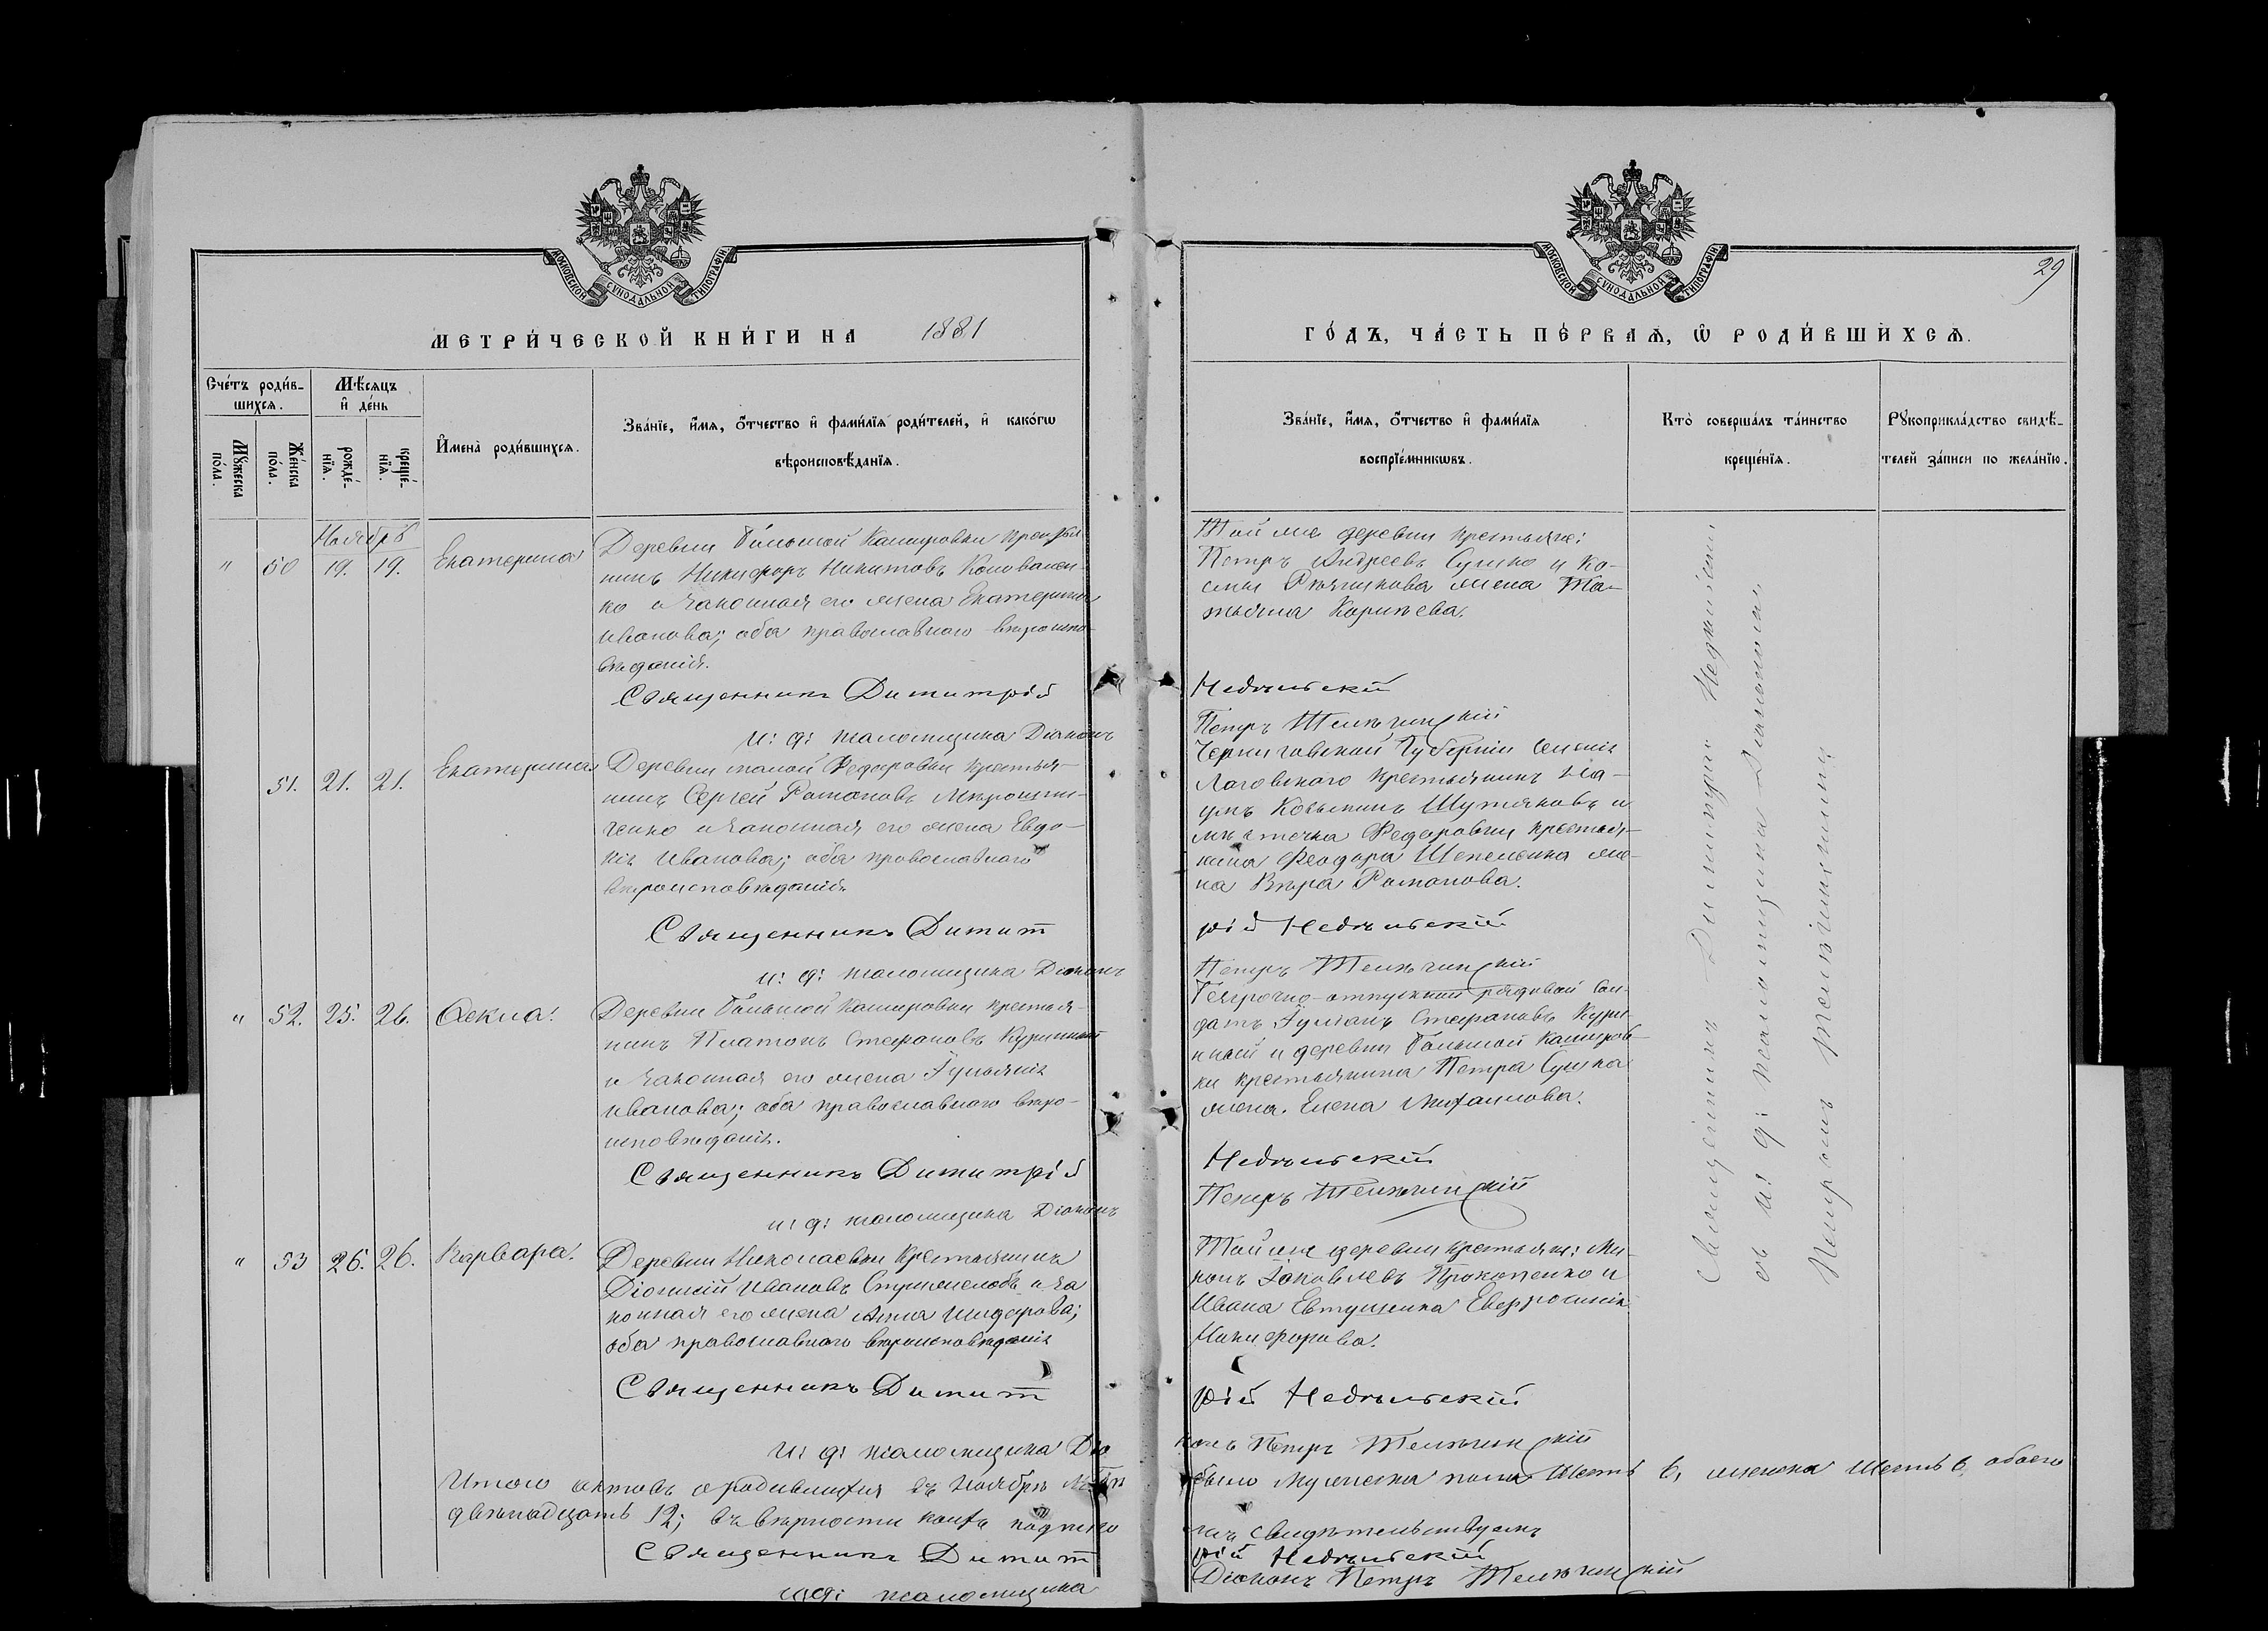 МОСКОВСКОЙ СУНОДАЛЬНОЙ ТИПОГРАФІИ.
МЕТРИ́ЧЕСКОЙ КНИ́ГИ НА 1881
Сче́тъ роди́в-
шихсѧ.
Мѣ́сѧцъ
и҆ де́нь
Мꙋ́жеска
по́ла.
Же́нска
по́ла.
рожде́-
нїѧ.
креще́-
нїѧ.
И҆мена̀ роди́вшихсѧ.
Зва́нїе, и҆́мѧ, ѻ҆́тчество и҆ фами́лїѧ роди́телей, и҆ како́гѡ
вѣроисповѣ́данїѧ.
Ноябрь
" 50 19. 19. Екатерина
Деревни Большой Кашировки крестья-
нинъ Никифоръ Никитовъ Коновален-
ко и законная его жена Екатерина
Иванова; оба православнаго вѣроиспо-
вѣданія.
Священникъ Димитрій
и: д: псаломщика Діаконъ
51. 21. 21. Екатерина
Деревни малой Федоровки крестья-
нинъ Сергей Романовъ Мирошни-
ченко и законная его жена Евдо-
кія Иванова; оба православнаго
вѣроисповѣданія
Священникъ Димит
и: д: псаломщика Діаконъ
" 52. 25. 26. Ѳекла.
Деревни Большой Кашировки крестья-
нинъ Платонъ Стефановъ Куринный
и законная его жена Іуліанія
Иванова; оба православнаго вѣро-
исповѣданія.
Священникъ Димитрій
и: д: псаломщика Діаконъ
" 53 26. 26. Варвара.
Деревни Николаевки крестьянинъ
Діонисій Ивановъ и за
конная его жена Анна
оба православнаго вѣроисповѣданія
Священникъ Димит
и: д: псаломщика Діа
Итого актовъ о родившихся въ Ноябрѣ
двѣнадцать 12; въ вѣрности коихъ подписо
Священникъ Димит
ид: псаломщика
29
МОСКОВСКОЙ СУНОДАЛЬНОЙ ТИПОГРАФІИ.
ГО́ДЪ, ЧА́СТЬ ПЕ́РВАѦ, Ѡ҆ РОДИ́ВШИХСѦ.
Зва́нїе, и҆́мѧ, ѻ҆́тчество и҆ фами́лїѧ
воспрїе́мникѡвъ.
Кто̀ соверша́лъ та́инство
креще́нїѧ.
Рꙋкоприкла́дство свидѣ́-
телей за́писи по жела́нїю.
Той же деревни крестьяне:
Петръ Андреевъ Сушко и Ко-
смы жена Та-
тьяна Корнѣева.
Недѣльскій
Петръ
Черниговской Губерніи
крестьянинъ На-
умъ Козьминъ Шутяковъ и
мѣстечка Федоровки крестья-
нина Феодора Шепеленка же-
на Вѣра Романова.
рій Недѣльскій
Петръ
отпускный рядовой сол-
датъ Іуліанъ Стефановъ Кури-
нный и деревни Большой Каширов-
ки крестьянина Петра Сушка
жена. Елена Михаилова.
Недѣльскій
Петръ
Той же деревни крестьяне: Ми-
ронъ Іаковлевъ Прокопенко и
Ивана Евтушенка Евфросинія
Никифорова.
рій Недѣльскій
конъ Петръ
было мужеска пола Шесть 6, женска Шесть 6, обоего
мъ свидѣтельствуемъ
рій Недѣльскій
Діаконъ Петръ
Священникъ Димитрій Недѣльскій
съ и: д: псаломщика Діакономъ
Петромъ